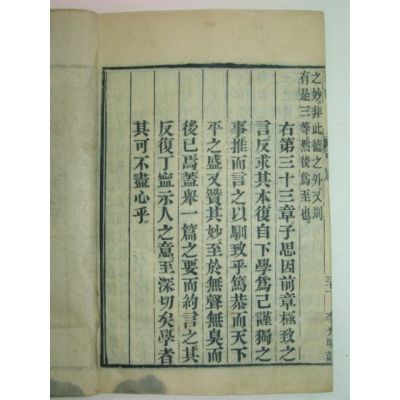 之妙。非此德之外又別
有是三等。然後爲至也。
右第三十三章子思因前章極致之
言反求其本復自下學爲己謹獨之
事推而言之以馴致乎篤恭而天下
平之盛又贊其妙至於無聲無臭而
後已焉蓋舉一篇之要而約言之其
反復丁寧示人之意至深切矣學者
其可不盡心乎。